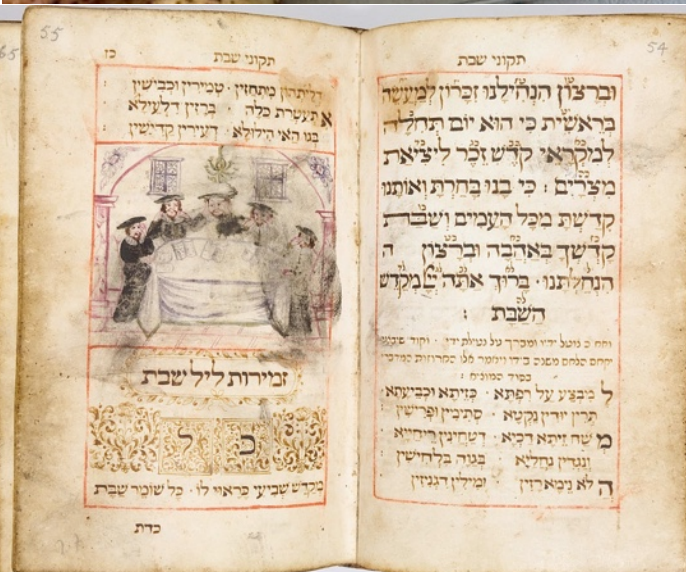 54
תקוני שבת
וברצון הנחילנו זכרון למעשה
בראשית כי הוא יום תחלה
למקראי קדש זכר ליציאת
מצרים : כי בנו בחרת ואותנו
קדשת מכל העמים ושבת
קדשך באהבה וברצון ה
הנחלתנו · ברוך אתה יי מקדש
השבת :
נוטל ידיו ומברך על נטילת ידי׳
הלחם משנה בידו ויאמר אלו החרוזות
בסוד המוציא :
ל מבצע על רפתא · כזיתא וכביעתא
תרין יודין נקטא · סתימין ופרישין
מ שח זיתא דכיא · דטחינין ריחייא
ונגדין נחליא בגוה בלחישין
ה לא נימא רזין · ומילין דגניזין
55
תקוני שבת כז
דליתהון מתחזין · טמירין וכבישין
א תעטרת כלה · ברזין דלעילא :
בגו האי הילולא · דעירין קדישין :
זמירות ליל שבת
כל
מקדש שביעי כראוי לו · כל שומר שבת
כדת
65